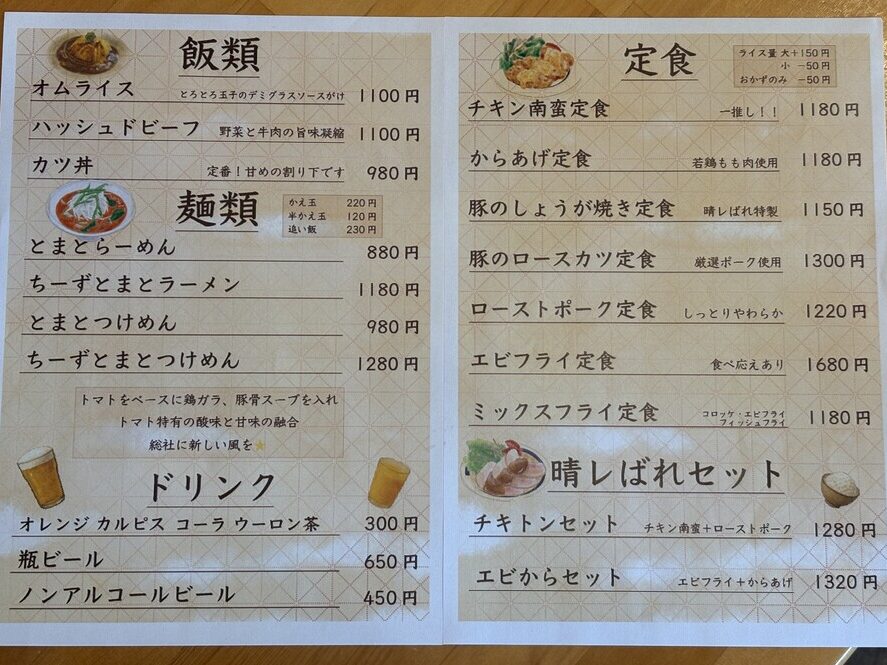 飯類
オムライス とろとろ玉子のデミグラスソースがけ 1100円
ハッシュドビーフ 野菜と牛肉の旨味凝縮 1100円
カツ丼 定番！甘めの割り下です 980円
麺類
かえ玉 220円
半かえ玉 120円
追い飯 230円
とまとらーめん 880円
ちーずとまとラーメン 1180円
とまとつけめん 980円
ちーずとまとつけめん 1280円
トマトをベースに鶏ガラ、豚骨スープを入れ
トマト特有の酸味と甘味の融合
総社に新しい風を⭐
ドリンク
オレンジ カルピス コーラ ウーロン茶 300円
瓶ビール 650円
ノンアルコールビール 450円
定食
ライス量 大+150円
小 -50円
おかずのみ -50円
チキン南蛮定食 一推し！！ 1180円
からあげ定食 若鶏もも肉使用 1180円
豚のしょうが焼き定食 晴レばれ特製 1150円
豚のロースカツ定食 厳選ポーク使用 1300円
ローストポーク定食 しっとりやわらか 1220円
エビフライ定食 食べ応えあり 1680円
ミックスフライ定食 コロッケ・エビフライ 1180円
フィッシュフライ
晴レばれセット
チキトンセット チキン南蛮+ローストポーク 1280円
エビからセット エビフライ+からあげ 1320円